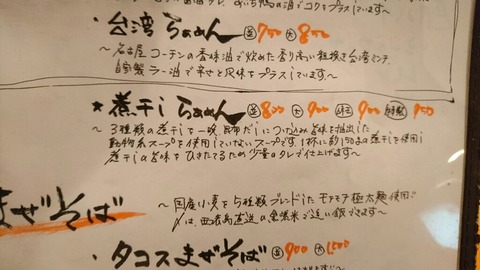 の油でコクをプラスしています〜
・台湾らぁめん 並700 大800
〜名古屋コーチンの香味油で炒めた香り高い粗挽き台湾ミンチ
自製ラー油で辛さと尾味をプラスしています〜
★煮干しらぁめん 並800 大900 900 特製950
〜3種類の煮干しを一晩、昆布だしにつけ込み旨味を抽出した
動物系スープを使用していないスープです。1杯に約150gの煮干しを使用し
煮干しの旨味をひきたてるため少量のタレで仕上げます〜
まぜそば
〜国産小麦を5種類ブレンドしたモチモチ極太麺使用
〆は、西表島直送の黒紫米で追い飯できます〜
・タコスまぜそば 並900 大1,500